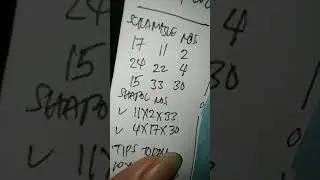 SCRAMBLE NOS
17 11 2
24 22 4
15 33 30
SHADOL NOS
√ 11X2X33
√ 4X17X30
TIPS TODAY